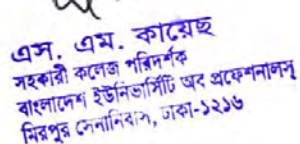 এস, এম. কায়েছ
সহকারী কলেজ পরিদর্শক
বাংলাদেশ ইউনিভার্সিটি অব প্রফেশনালস্
মিরপুর সেনানিবাস, ঢাকা-১২১৬